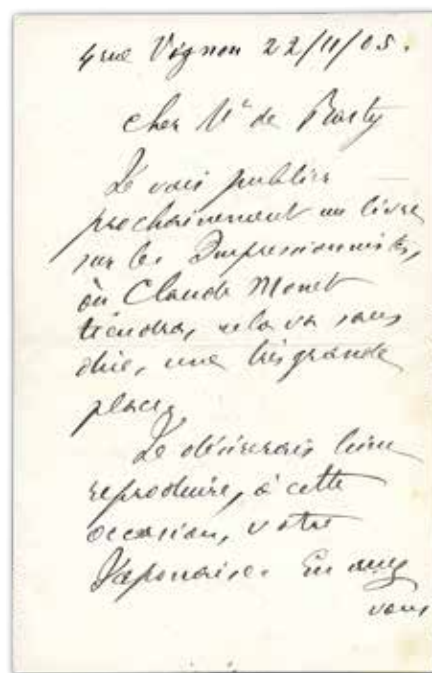 4 rue Vignon 22/11/05.
Cher Mr de
Je vais publier
prochainement un livre
sur les Impressionnistes,
où Claude Monet
tiendra, cela va sans
dire, une très grande
place.
Je désirerais bien
reproduire, à cette
occasion, votre
Japonaise. En avez
vous